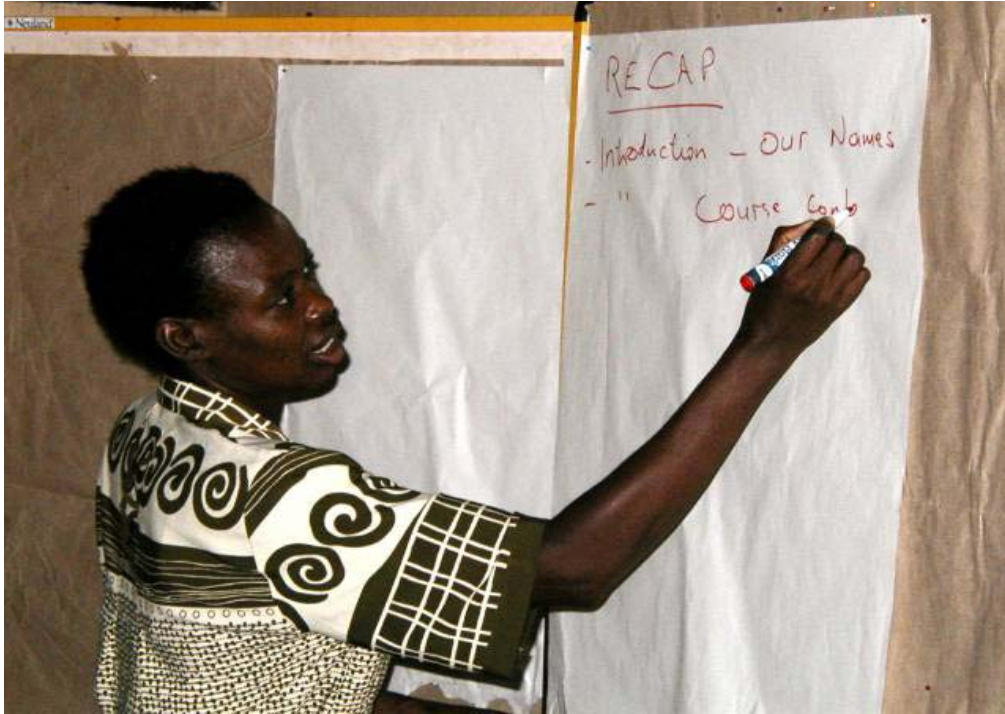 Neuland
RECAP
- Introduction - Our Names
- " Course Cont